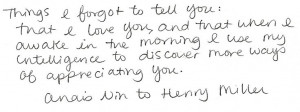 Things I forgot to tell you:
that I love you, and that when I
awake in the morning I use my
intelligence to discover more ways
of appreciating you.
anaïs nin to Henry Miller